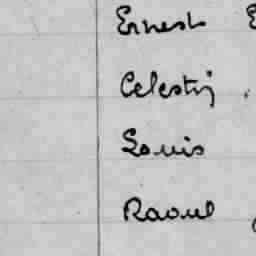 Ernest E
Celestin
Louis
Raoul